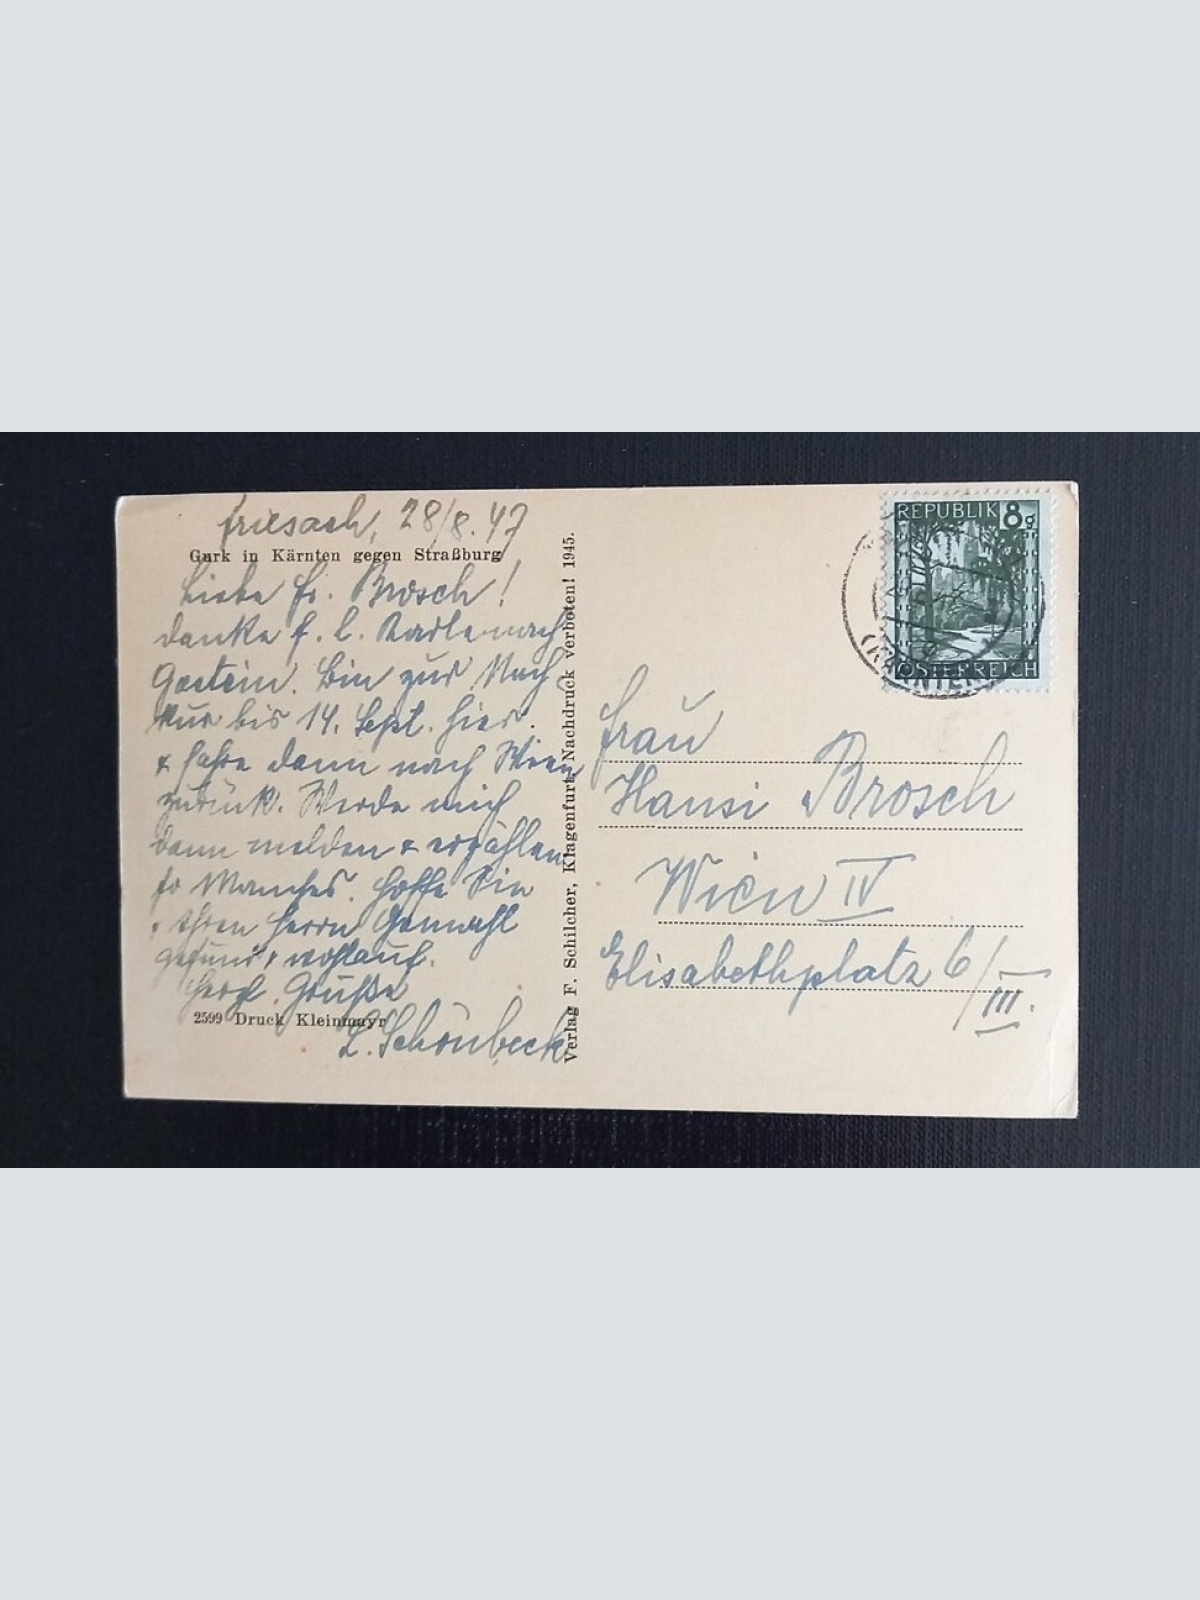 Friesach, 28/8. 47
Gurk in Kärnten gegen Straßburg
Liebe Fr. Brosch!
danke f. l. Karte nach
Gastein. Bin zur Nach
kur bis 14. Sept. hier.
& fahre dann nach Wien
zurück. Werde mich
dann melden & erzählen
so Manches. Hoffe Sie
& Ihren Herrn Gemahl
gesund & wohlauf.
Herzl. Grüße
2599 Druck Kleinmayr
L. Schönbeck
Verlag F. Schilcher, Klagenfurt. Nachdruck verboten! 1945.
REPUBLIK 8g
ÖSTERREICH
(KÄRNTEN)
Frau
Hansi Brosch
Wien IV
Elisabethplatz 6/III.